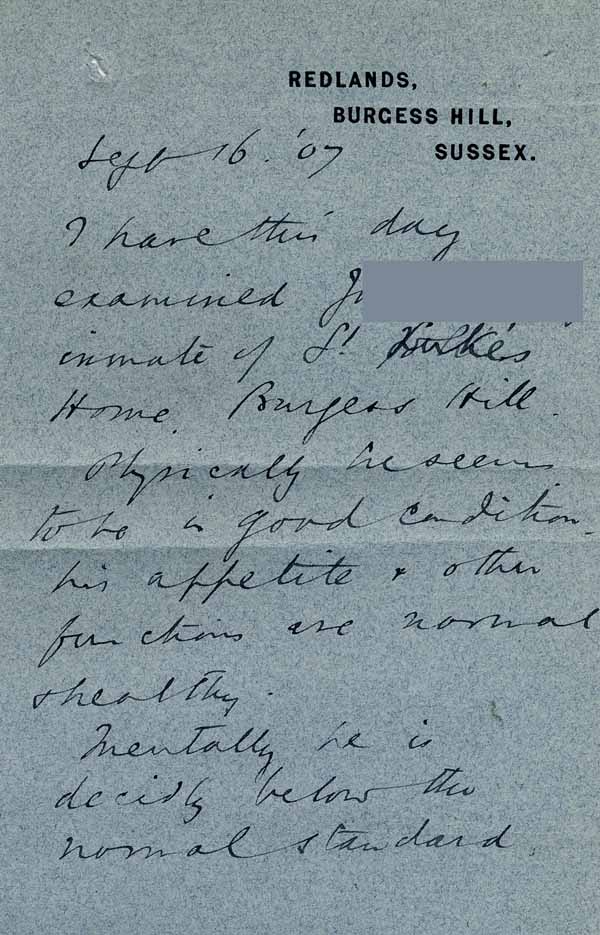 REDLANDS,
BURGESS HILL,
SUSSEX.
Sept 16. '07
I have this day
examined
inmate of St
Home, Burgess Hill.
Physically he seems
to be in good condition.
his appetite & other
functions are normal
& healthy.
Mentally he is
decidly below the
normal standard